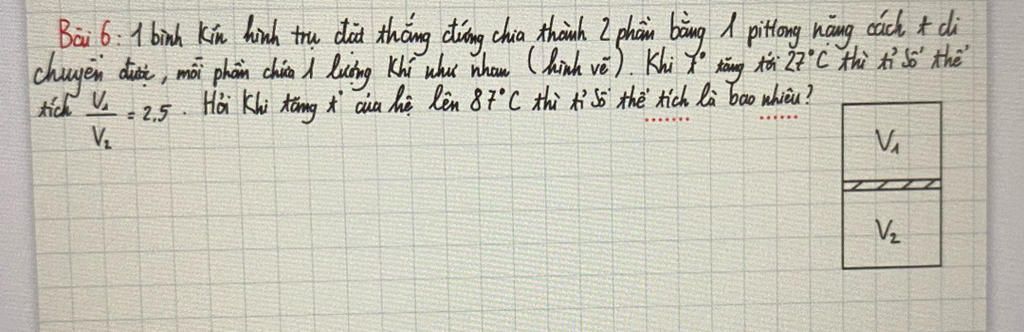 Bài 6: 1 bình kín hình trụ đặt thẳng đứng chia thành 2 phần bằng 1 pittong nặng cách t di
chuyển được, mỗi phần chứa 1 lượng khí như nhau (hình vẽ). Khi t° tăng tới 27°C thì tỉ số thể
tích V₁/V₂ = 2,5. Hỏi khi tăng t° của hệ lên 87°C thì tỉ số thể tích là bao nhiêu?
V₁
V₂